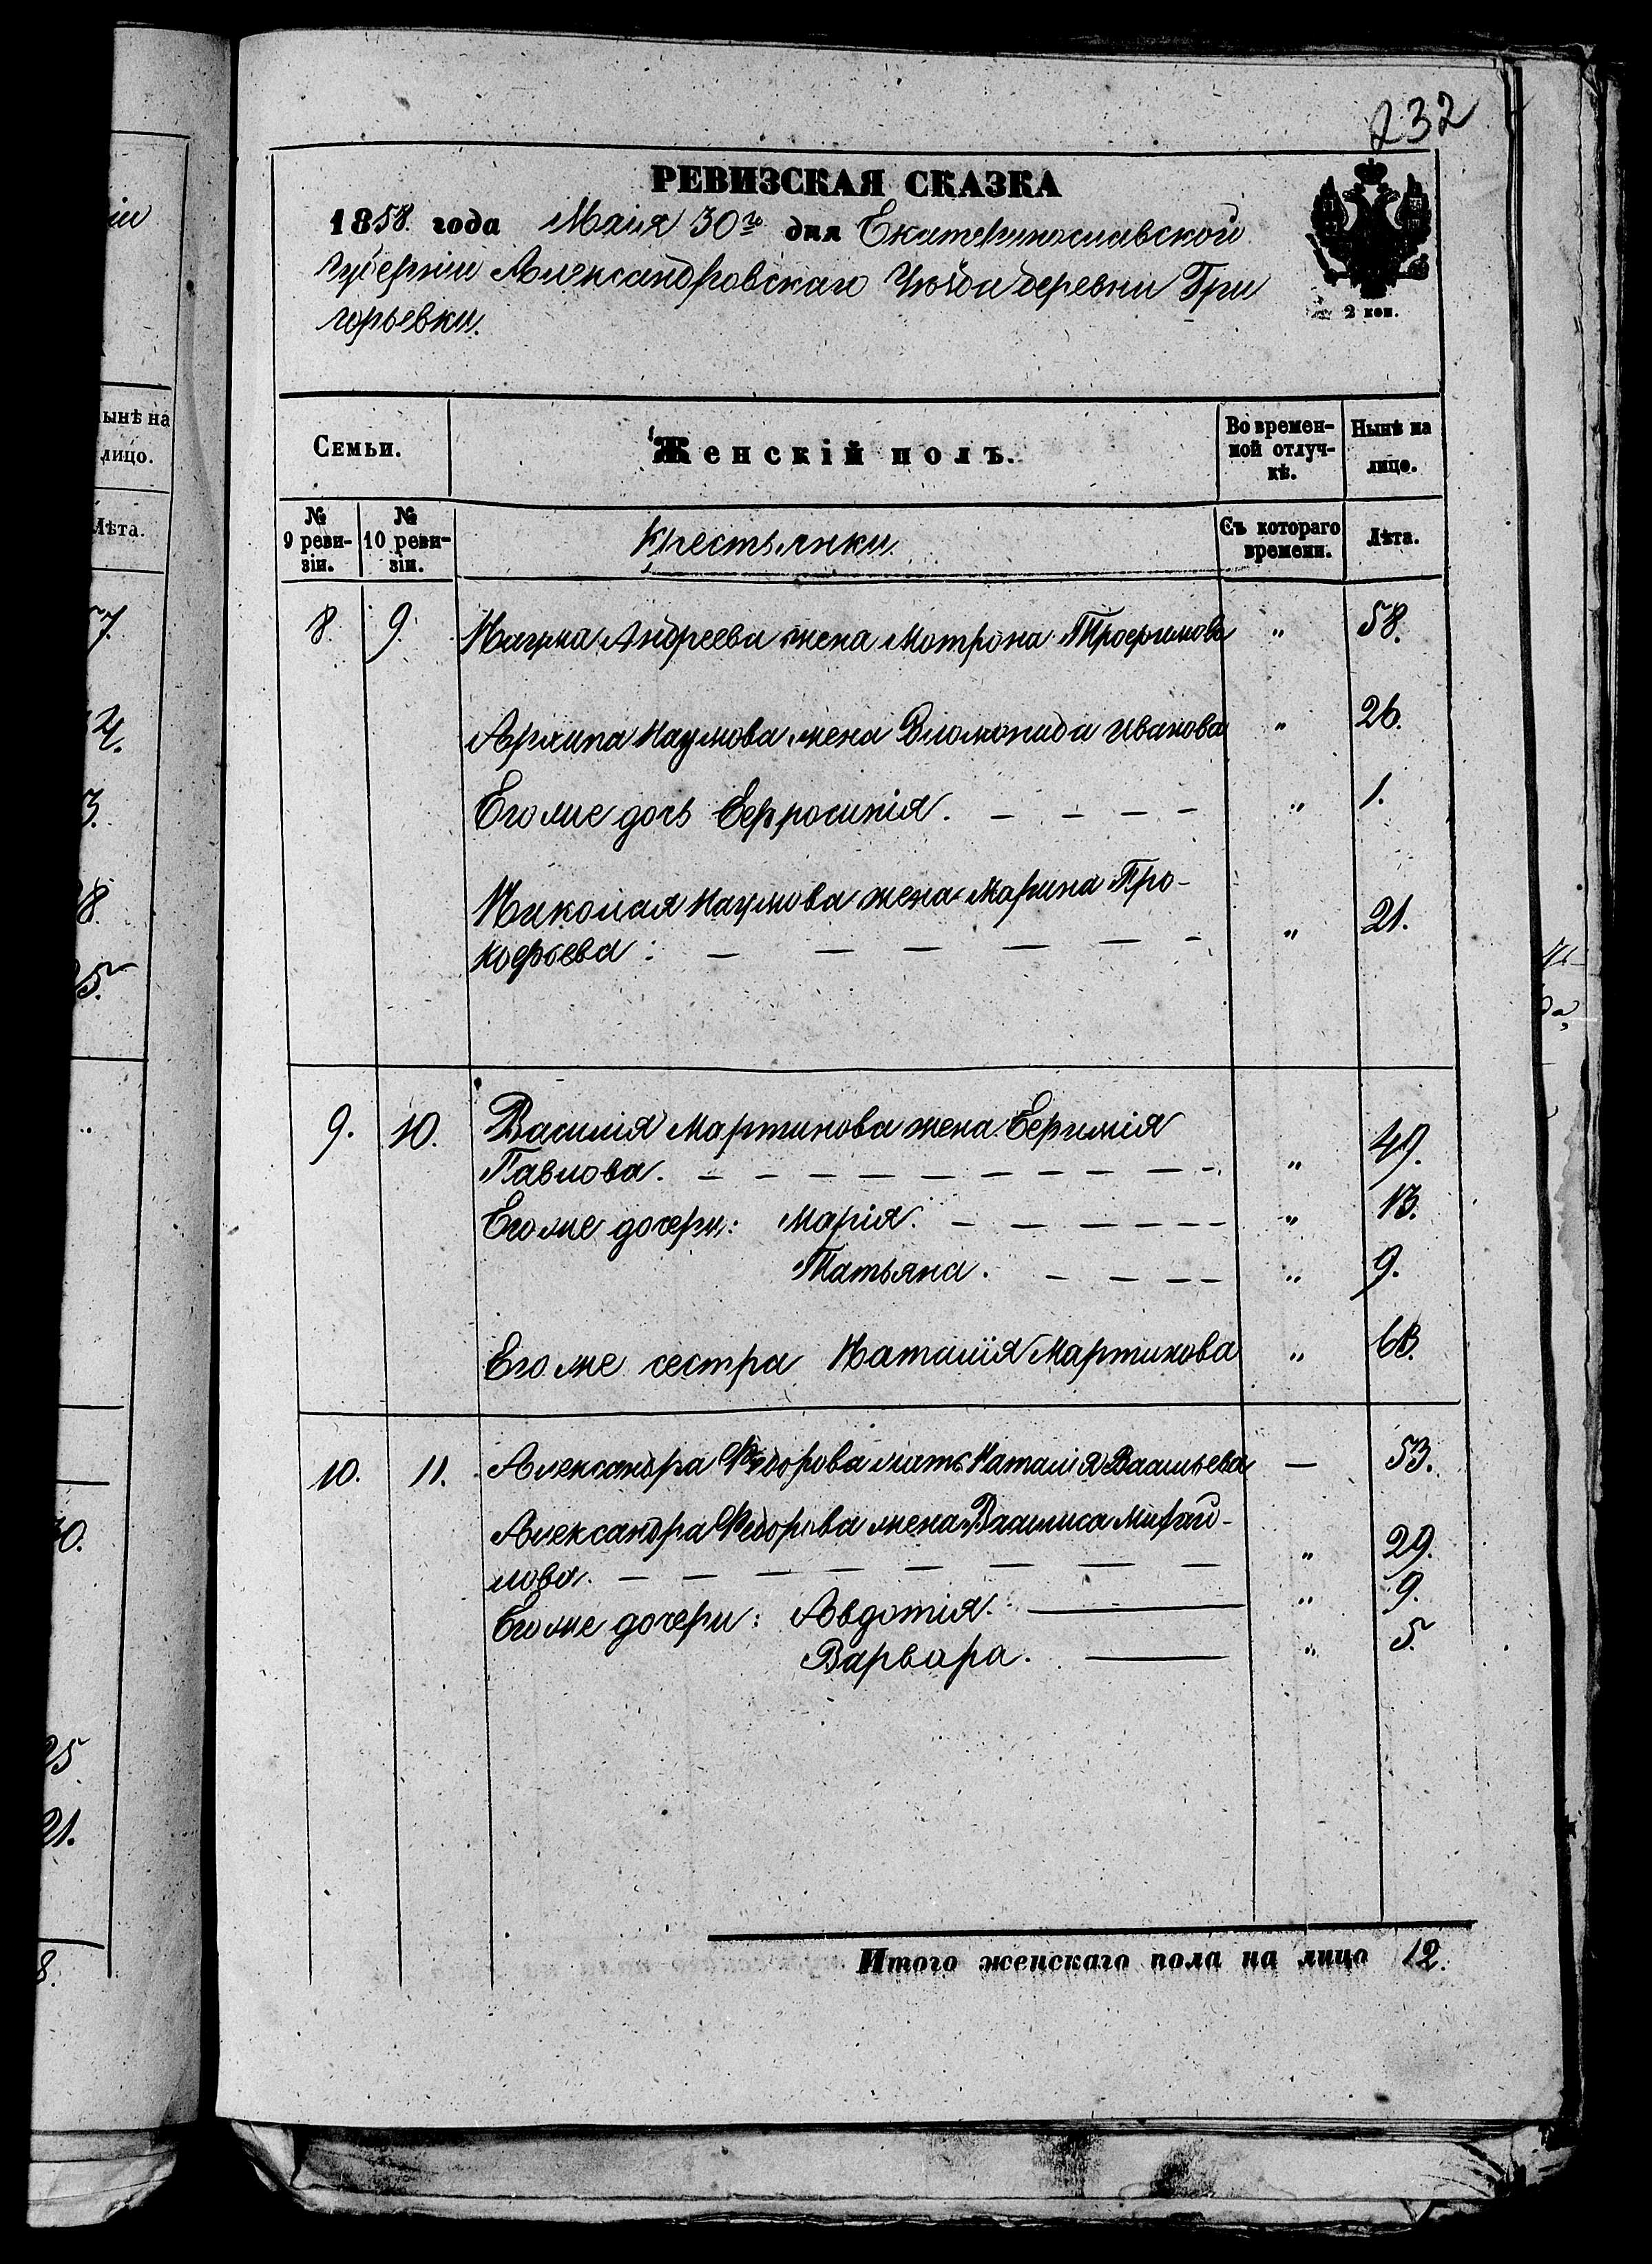 232
РЕВИЗСКАЯ СКАЗКА
1858. года Маия 30го дня Екатеринославской
Губернии Александровскаго Уезда деревни Гри
горьевки.
2 коп.
Семьи.
Женскій полъ.
Во времен-
ной отлуч-
кѣ.
Нынѣ на
лицо.
№
9 реви-
зіи.
№
10 реви-
зіи.
Крестьянки
Съ котораго
времени.
Лѣта.
8. 9. Наума Андреева жена Мотрона Трофимова " 58.
Архипа Наумова жена Иванова " 26.
Его же дочь Ефросинія. – – – – " 1.
Николая Наумова жена Марина Про-
кофьева: – – – – – – " 21.
9. 10. Василія Мартинова жена Ефимія
Павлова. – – – – – – – – – – " 49.
Его же дочери: Марія. – – – – – – " 13.
Татьяна. – – – – " 9.
Его же сестра Наталія Мартинова " 63.
10. 11. Александра Федорова мать Наталія Васильева — 53.
Александра Федорова жена Василиса Михай-
лова. – – – – – – – – " 29.
Его же дочери: Авдотія. — " 9.
Варвара. — " 5.
Итого женскаго пола на лицо 12.
ынѣ на
лицо.
Лѣта.